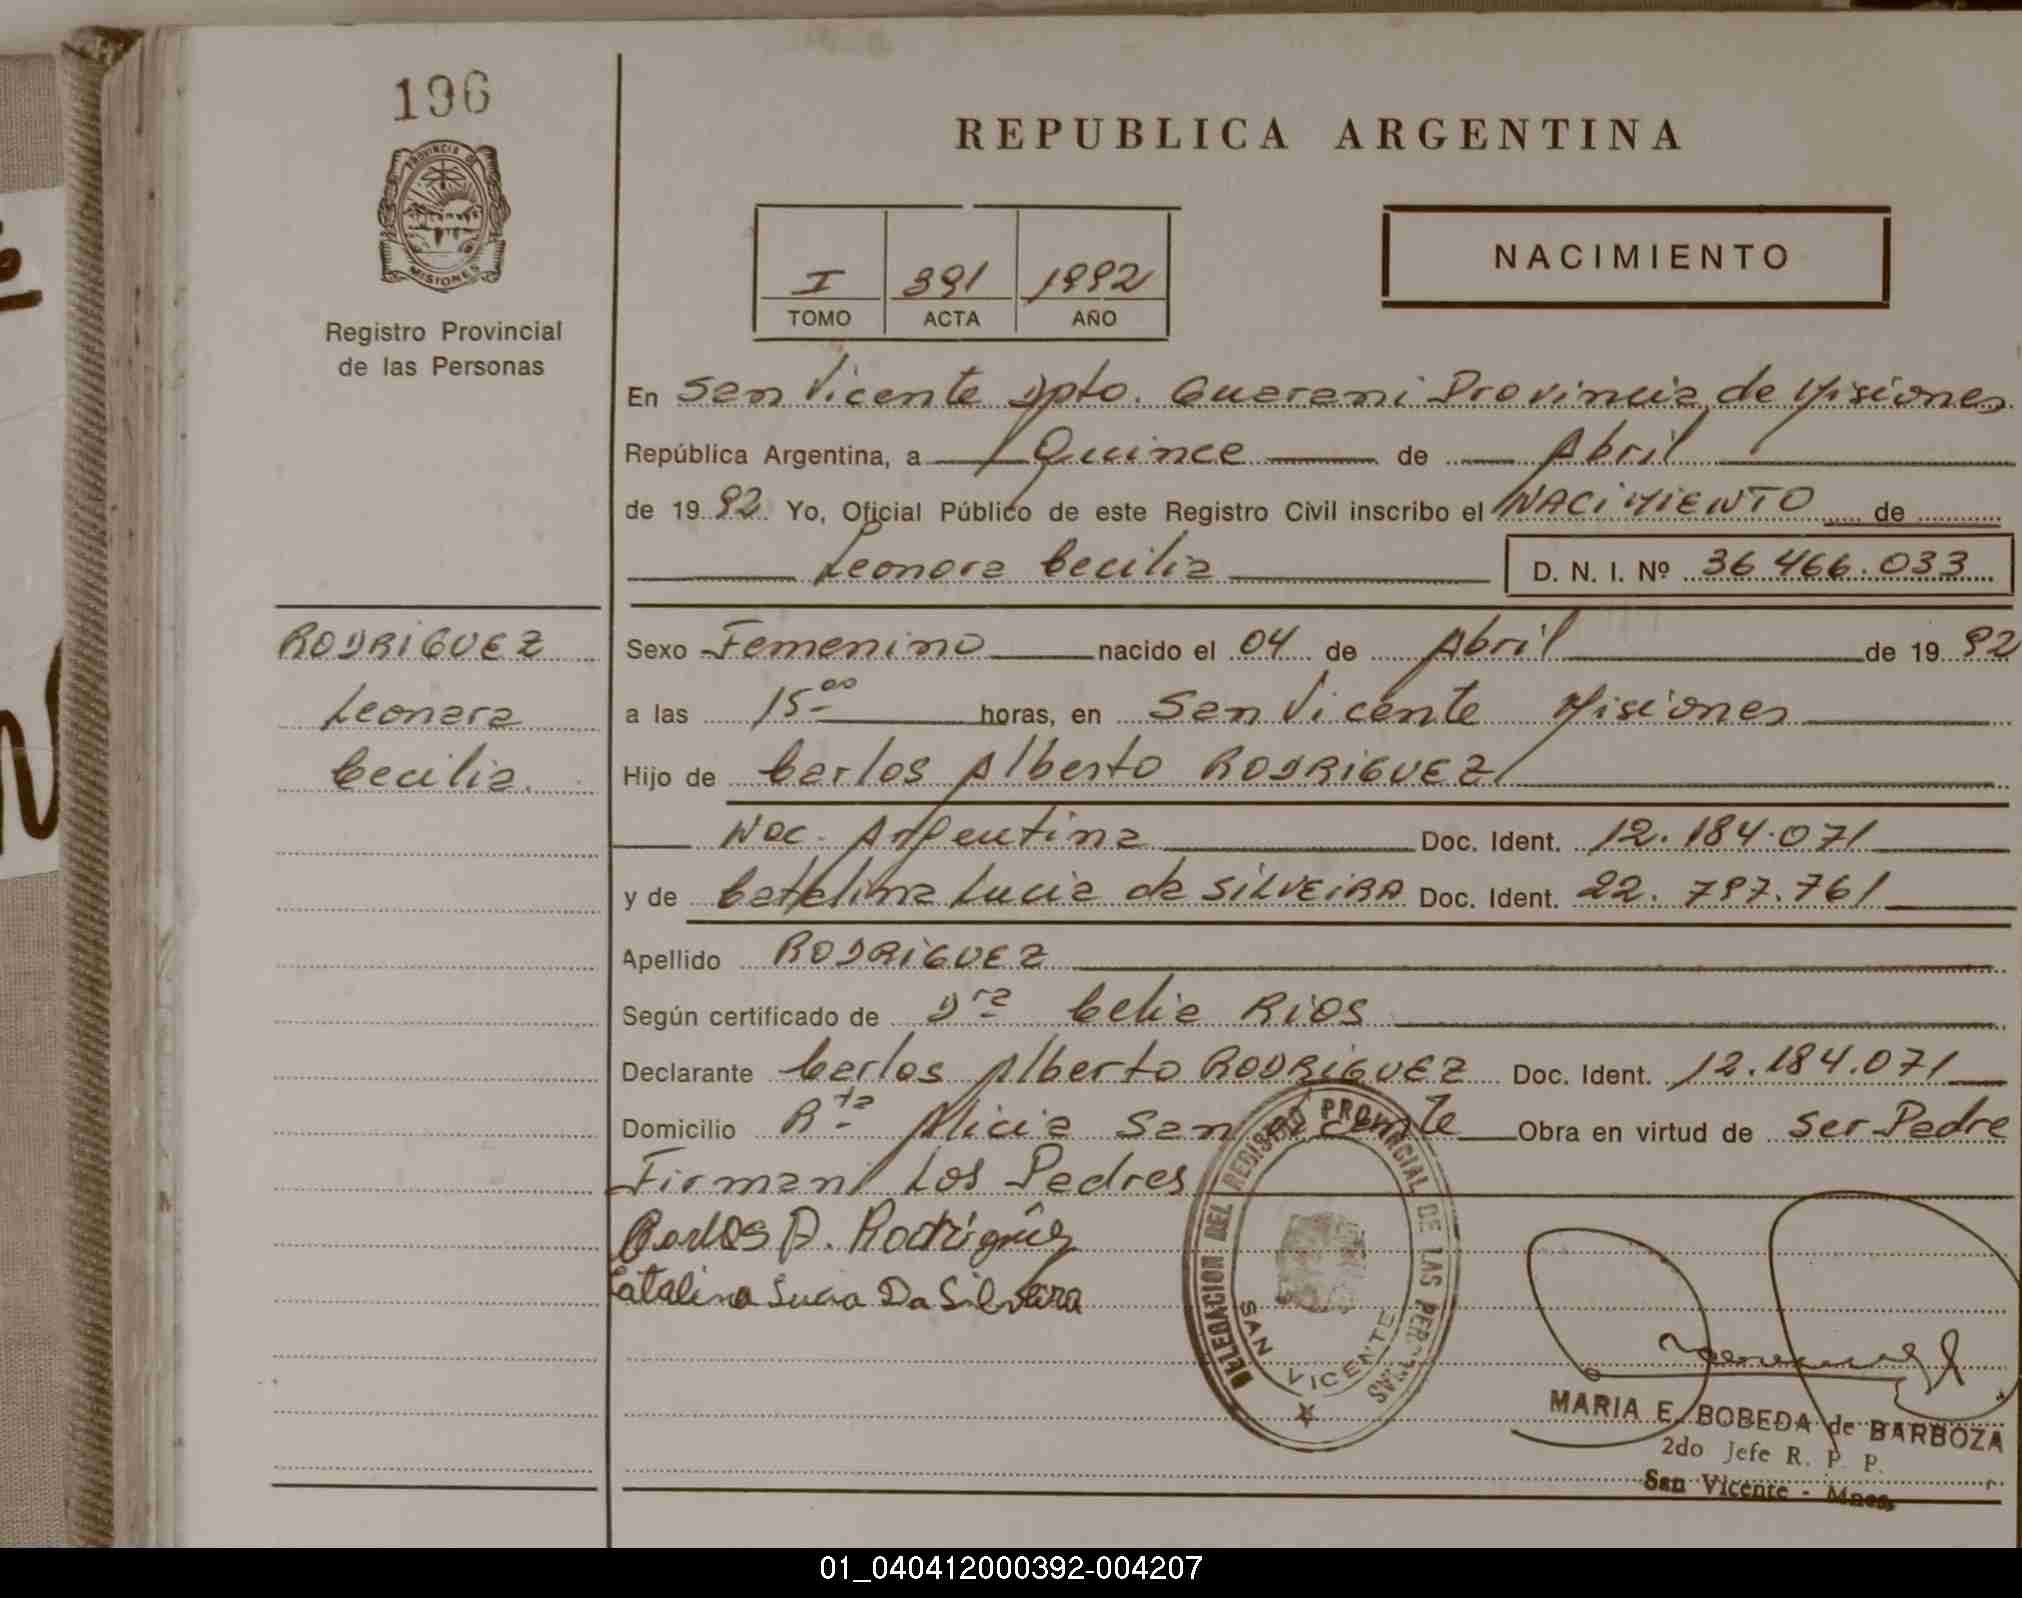 196
PROVINCIA DE
MISIONES
Registro Provincial
de las Personas
REPUBLICA ARGENTINA
I 391 1992
TOMO ACTA AÑO
NACIMIENTO
En San Vicente Dpto. Guarani Provincia de Misiones
República Argentina, a Quince de Abril
de 1992 Yo, Oficial Público de este Registro Civil inscribo el NACIMIENTO de
Leonara Cecilia D. N. I. Nº 36 466.033
RODRIGUEZ
Leonara
Cecilia.
Sexo Femenino nacido el 04 de Abril de 1992
a las 15 00 horas, en San Vicente Misiones
Hijo de Carlos Alberto RODRIGUEZ
Nac. Argentina Doc. Ident. 12.184.071
y de Catalina Lucia da SILVEIRA Doc. Ident. 22.797.761
Apellido RODRIGUEZ
Según certificado de Dra Celia RIOS
Declarante Carlos Alberto RODRIGUEZ Doc. Ident. 12.184.071
Domicilio Rta Alicia San Vicente Obra en virtud de Ser Padre
Firman Los Padres
Carlos A. Rodriguez
Catalina Lucia Da Silveira
DELEGACION DEL REGISTRO PROVINCIAL DE LAS PERSONAS
SAN VICENTE
MARIA E. BOBEDA de BARBOZA
2do Jefe R. P. P.
San Vicente - Mnes.
01_040412000392-004207